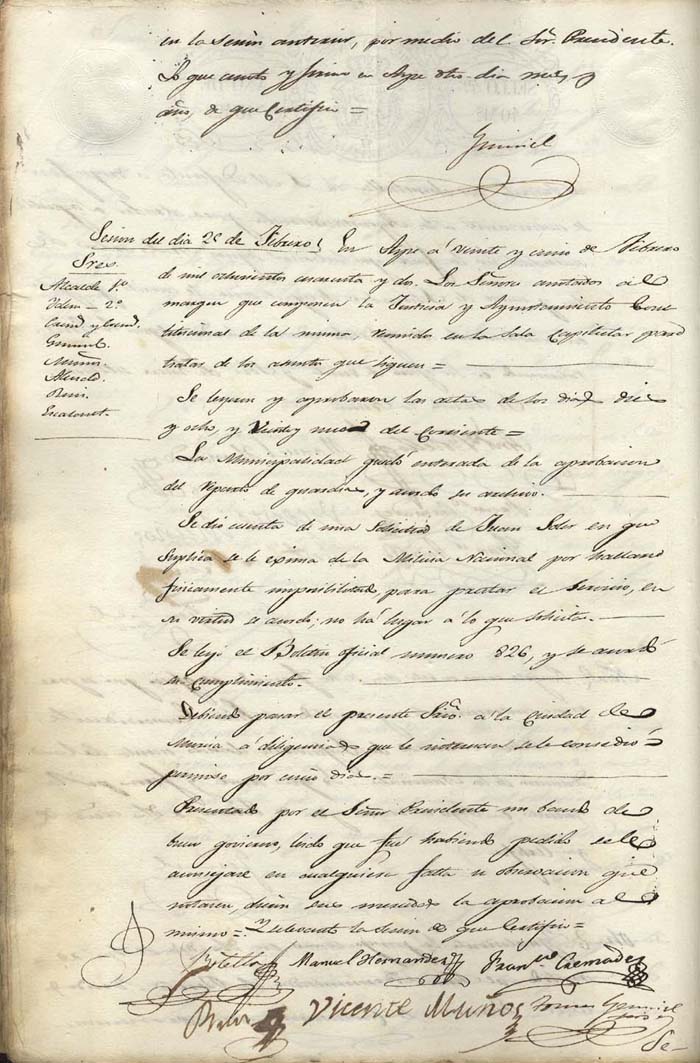 en la Sesion anterior, por medio del Sor. Presidente.
Lo que cunto y firmo en Aspe dho. dia mes y
año, de que Certifico =
Sesion del dia 25 de Febrero. En Aspe á veinte y cinco de Febrero
Sres.
Alcalde 1º
Ydem - 2º
Muñoz.
de mil ochocientos cuarenta y dos. Los Señores anotados al
margen que componen la Justicia y Ayuntamiento Cons
titucional de la misma, reunidos en la Sala Capitular para
tratar de los asuntos que siguen =
Se leyeron y aprobaron las actas de los dias diez
y ocho, y Veinte y del Corriente =
La Municipalidad quedó enterada de la aprobacion
del reparto de guardias, y acordó su archivo.
Se dio cuenta de una Solicitud de Juan Soler en que
Suplica se le exima de la Milicia Nacional por hallarse
fisicamente imposibilitado para prestar el Servicio, en
su virtud se acordó; no há lugar á lo que solicita.
Se leyó el Boletin oficial numero 826, y se acordó
su Cumplimiento.
Debiendo pasar el presente Srio. á la Ciudad de
Murcia á diligencias que le interesan se le consedió
permiso por cinco dias. =
Presentado por el Señor Presidente un bando de
buen govierno, leido que fue habiendo pedido se le
aconsejase en cualquiera falta u observacion que
notaren, dieron sus mercedes la aprobacion al
mismo = Y se levantó la Sesion de que Certifico =
Botella Manuel Hernandez Franco. Cremades
Vicente Muñoz Tomas